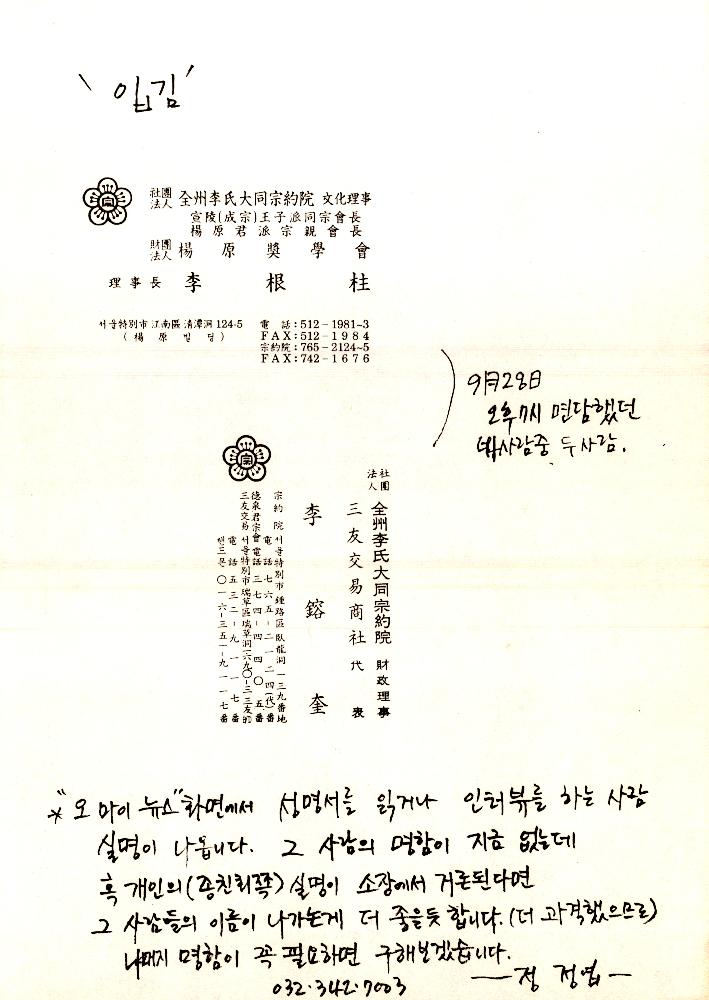 '입김'
宗
社團法人 全州李氏大同宗約院 文化理事
宣陵(成宗)王子派同宗會長
楊原君派宗親會長
財團法人 楊原奬學會
理事長 李根柱
서울特別市 江南區 淸潭洞 124-5
(楊原빌딩)
電話:512-1981~3
FAX:512-1984
宗約院:765-2124~5
FAX:742-1676
9月28日
오후7시 면담했던
네사람중 두사람.
宗
社團法人 全州李氏大同宗約院 財政理事
三友交易商社 代表
李鎔奎
宗約院 서울特別市 鍾路區 臥龍洞 一三九番地
電話 七六五-二一二四(代)番
德泉君宗會 電話 三七四-四四〇五番
三友交易 서울特別市 瑞草區 瑞草洞
電話 五三二-九一一七番
핸드폰 〇一六-三五一-九一一七番
* "오마이뉴스"화면에서 성명서를 읽거나 인터뷰를 하는 사람
실명이 나옵니다. 그 사람의 명함이 지금 없는데
혹 개인의(종친회쪽) 실명이 소장에서 거론된다면
그 사람들의 이름이 나가는게 더 좋을듯 합니다.(더 과격했으므로)
나머지 명함이 꼭 필요하면 구해보겠습니다.
032·342·7003
—정 정엽—